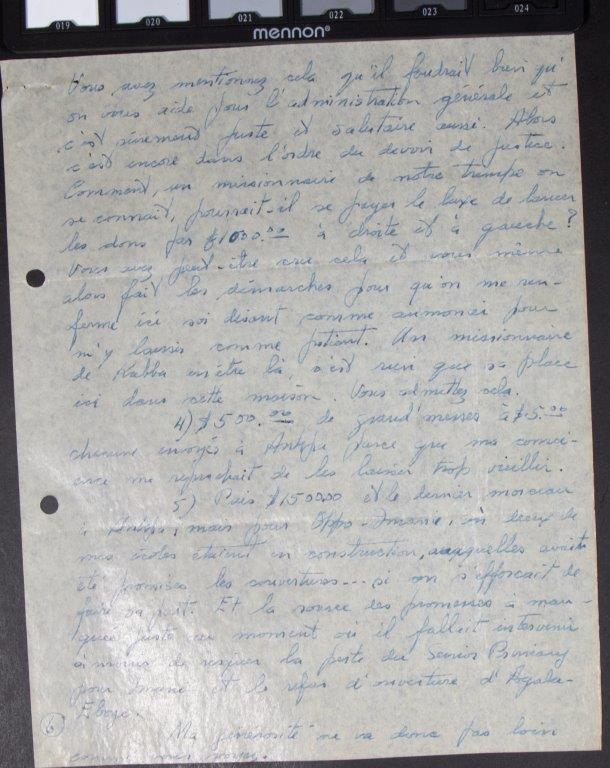 019 020 021 022 023 024
mennon®
Vous avez mentionnez cela qu'il faudrait bien qu'
on vous aide pour l'administration générale et
c'est sûrement juste et salutaire aussi. Alors
c'est encore dans l'ordre du devoir de justice.
Comment, un missionnaire de notre trempe on
se connait, pourrait-il se payer le luxe de lancer
les dons par $1000.00 à droite et à gauche?
Vous avez peut-être cru cela et vous même
alors fait les démarches pour qu'on me ren-
ferme ici soi disant comme aumonier pour
m'y laisser comme patient. Un missionnaire
de Kabba en être là, c'est rien que sa place
ici dans cette maison. Vous admettez cela.
4) $500.00 de grand'messes à $5.00
chacune envoyés à parce que ma consci-
ence me reprochait de les laisser trop vieillir.
5) Puis $1500.00 et le dernier morceau
à mais pour où deux de
mes écoles étaient en construction, auxquelles avaient
été promises les couvertures --- si on s'efforçait de
faire sa part. Et la source des promesses a man-
quée juste au moment où il fallait intervenir
à moins de risquer la perte du Senior Primary
pour et le refus d'ouverture d'
6
Ma générosité ne va donc pas loin
comme vous voyez.